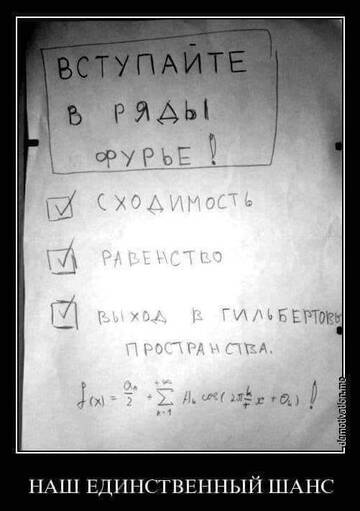 ВСТУПАЙТЕ
В РЯДЫ
ФУРЬЕ!
СХОДИМОСТЬ
РАВЕНСТВО
ВЫХОД В ГИЛЬБЕРТОВЫ
ПРОСТРАНСТВА.
f(x) = a₀/2 + +∞ Σ k=1 Aₖ cos(2π k/τ x + Θₖ)!
demotivation.me
НАШ ЕДИНСТВЕННЫЙ ШАНС